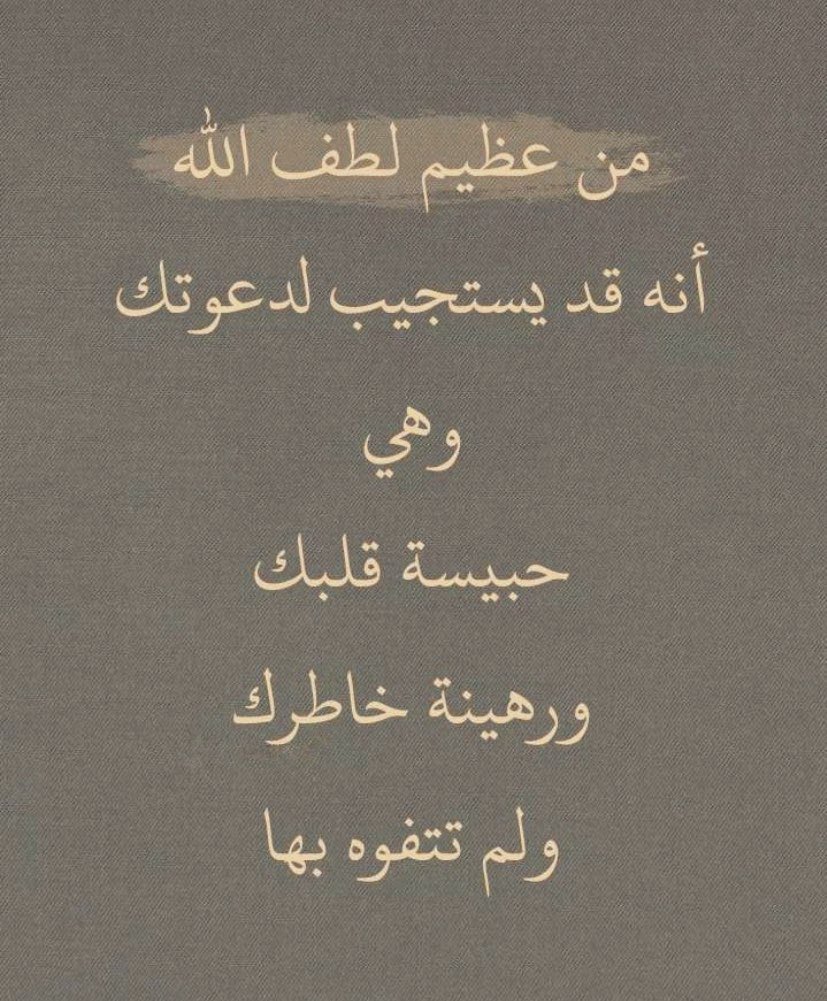 من عظيم لطف الله
أنه قد يستجيب لدعوتك
وهي
حبيسة قلبك
ورهينة خاطرك
ولم تتفوه بها